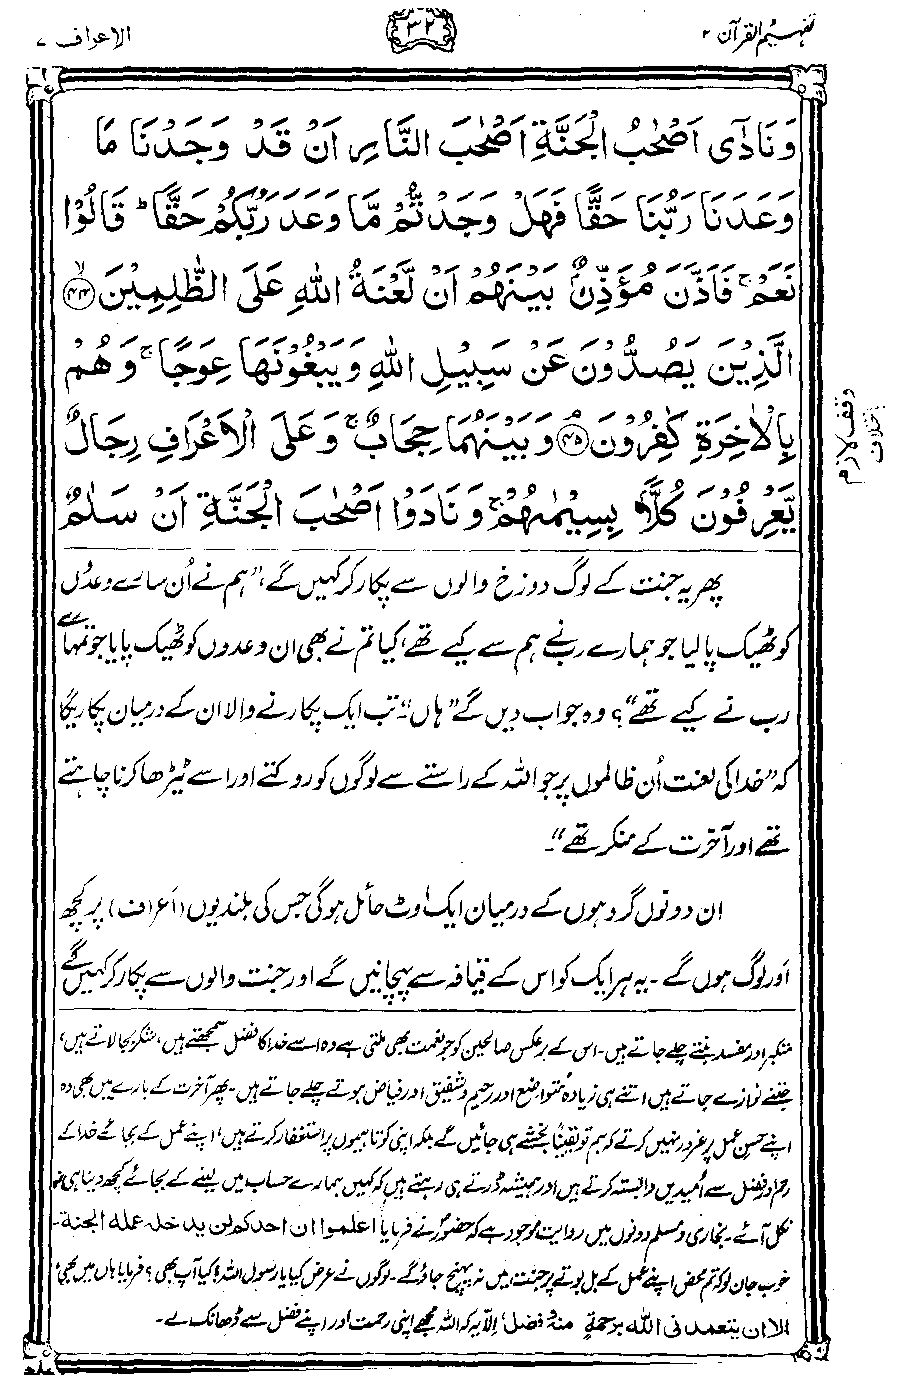 تفہیم القرآن ۲
۳۲
الاعراف ۷
وَنَادٰۤى اَصْحٰبُ الْجَنَّةِ اَصْحٰبَ النَّارِ اَنْ قَدْ وَجَدْنَا مَا
وَعَدَنَا رَبُّنَا حَقًّا فَهَلْ وَجَدْتُّمْ مَّا وَعَدَ رَبُّكُمْ حَقًّا ؕ قَالُوْا
نَعَمْ ۚ فَاَذَّنَ مُؤَذِّنٌۢ بَيْنَهُمْ اَنْ لَّعْنَةُ اللّٰهِ عَلَى الظّٰلِمِيْنَ ﴿۴۴﴾ ۙ
الَّذِيْنَ يَصُدُّوْنَ عَنْ سَبِيْلِ اللّٰهِ وَيَبْغُوْنَهَا عِوَجًا ۚ وَهُمْ
بِالْاٰخِرَةِ كٰفِرُوْنَ ﴿۴۵﴾ ۘ وَبَيْنَهُمَا حِجَابٌ ۚ وَعَلَى الْاَعْرَافِ رِجَالٌ
يَّعْرِفُوْنَ كُلًّاۢ بِسِيْمٰىهُمْ ۚ وَنَادَوْا اَصْحٰبَ الْجَنَّةِ اَنْ سَلٰمٌ
وقف لازم
پھر یہ جنت کے لوگ دوزخ والوں سے پکار کر کہیں گے، "ہم نے اُن سارے وعدوں
کو ٹھیک پا لیا جو ہمارے رب نے ہم سے کیے تھے، کیا تم نے بھی ان وعدوں کو ٹھیک پایا جو تمہارے
رب نے کیے تھے"؟ وہ جواب دیں گے "ہاں"۔ تب ایک پکارنے والا ان کے درمیان پکارے گا
کہ "خدا کی لعنت اُن ظالموں پر جو اللہ کے راستے سے لوگوں کو روکتے اور اسے ٹیڑھا کرنا چاہتے
تھے اور آخرت کے منکر تھے"۔
ان دونوں گروہوں کے درمیان ایک اوٹ حائل ہوگی جس کی بلندیوں (اَعراف) پر کچھ
اَور لوگ ہوں گے۔ یہ ہر ایک کو اس کے قیافہ سے پہچانیں گے اور جنت والوں سے پکار کر کہیں گے
متکبر اور مفسد بنتے چلے جاتے ہیں۔ اس کے برعکس صالحین کو جو نعمت بھی ملتی ہے وہ اسے خدا کا فضل سمجھتے ہیں، شکر بجا لاتے ہیں،
جتنے نوازے جاتے ہیں اتنے ہی زیادہ متواضع اور رحیم و شفیق اور فیاض ہوتے چلے جاتے ہیں۔ پھر آخرت کے بارے میں بھی وہ
اپنے حسنِ عمل پر غرور نہیں کرتے کہ ہم تو یقیناً بخشے ہی جائیں گے بلکہ اپنی کوتاہیوں پر استغفار کرتے ہیں، اپنے عمل کے بجائے خدا کے
رحم و فضل سے اُمیدیں وابستہ کرتے ہیں اور ہمیشہ ڈرتے ہی رہتے ہیں کہ کہیں ہمارے حساب میں لینے کے بجائے کچھ دینا ہی نہ
نکل آئے۔ بخاری و مسلم دونوں میں روایت موجود ہے کہ حضورؐ نے فرمایا اعلموا ان احدکم لن یدخلہ عملہ الجنۃ۔
خوب جان لو کہ تم محض اپنے عمل کے بل بوتے پر جنت میں نہ پہنچ جاؤ گے۔ لوگوں نے عرض کیا یا رسول اللہ! کیا آپ بھی؟ فرمایا ہاں میں بھی،
الا ان یتغمدنی اللہ برحمۃ منہ وفضل، اِلّا یہ کہ اللہ مجھے اپنی رحمت اور اپنے فضل سے ڈھانک لے۔